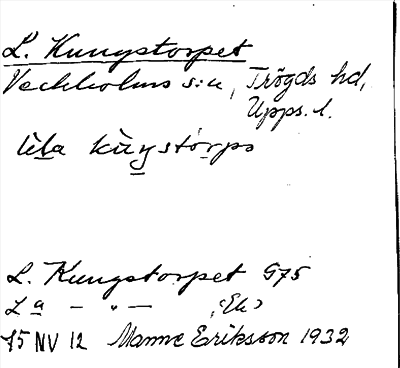 L. Kungstorpet
Veckholms s:n, Trögds hd,
Upps. l.
lila kuŋstorpo
L. Kungstorpet G75
La - " - (Ek)
75 NV 12 Manne Eriksson 1932